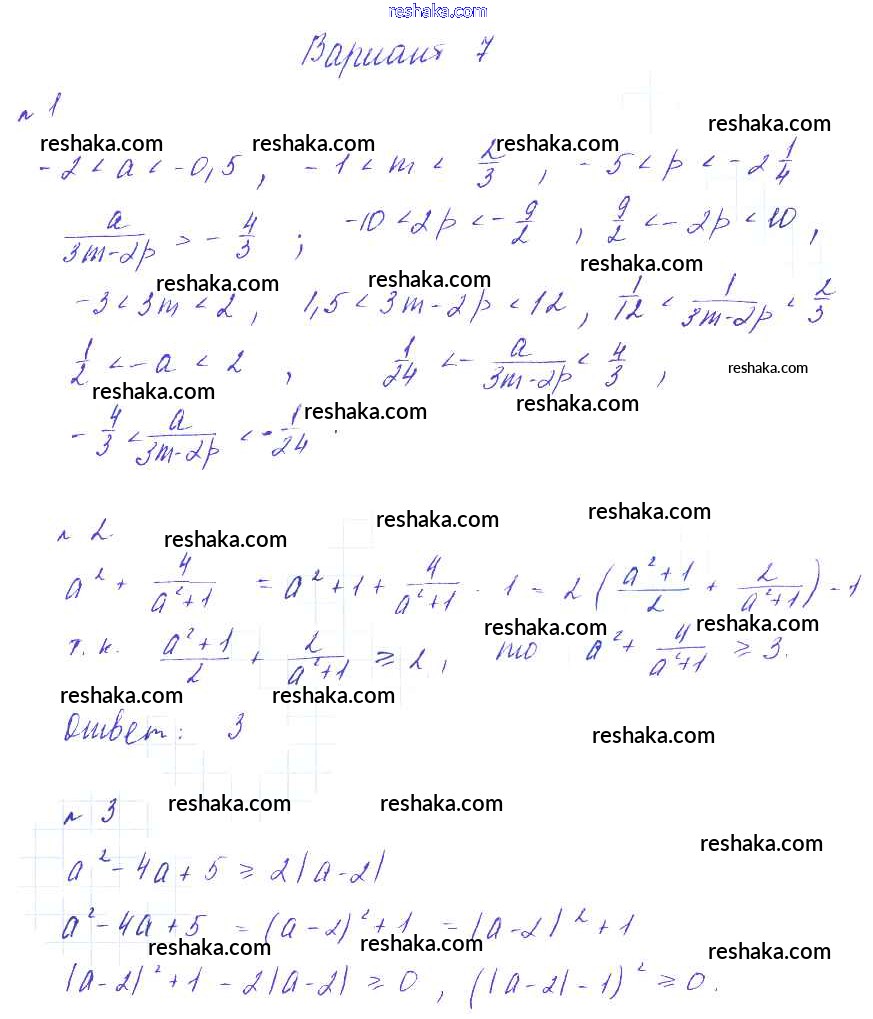 reshaka.com
Вариант 7
№ 1
reshaka.com
reshaka.com reshaka.com reshaka.com
-2 < a < -0,5, -1 < m < 2/3, -5 < p < -2 1/4
a/(3m-2p) > -4/3; -10 < 2p < -9/2, 9/2 < -2p < 10,
reshaka.com reshaka.com reshaka.com
-3 < 3m < 2, 1,5 < 3m-2p < 12, 1/12 < 1/(3m-2p) < 2/3
1/2 < -a < 2, 1/24 < -a/(3m-2p) < 4/3,
reshaka.com
reshaka.com reshaka.com reshaka.com
-4/3 < a/(3m-2p) < -1/24.
reshaka.com reshaka.com
№ 2.
reshaka.com
a² + 4/(a²+1) = a² + 1 + 4/(a²+1) - 1 = 2((a²+1)/2 + 2/(a²+1)) - 1
reshaka.com reshaka.com
т.к. (a²+1)/2 + 2/(a²+1) ≥ 2, то a² + 4/(a²+1) ≥ 3.
reshaka.com reshaka.com
Ответ: 3
reshaka.com
№ 3
reshaka.com reshaka.com
reshaka.com
a² - 4a + 5 ≥ 2|a-2|
a² - 4a + 5 = (a-2)² + 1 = |a-2|² + 1
reshaka.com reshaka.com reshaka.com
|a-2|² + 1 - 2|a-2| ≥ 0, (|a-2| - 1)² ≥ 0.